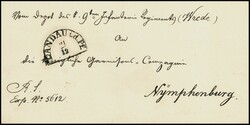 Vom Depot des k. 9ten Infanterie Regiments (Wrede)
An
LANDAU I.D.PF.
21
12
die Königliche Garnisons-Compagnie
Nymphenburg.
R. S.
Exp. No 5612